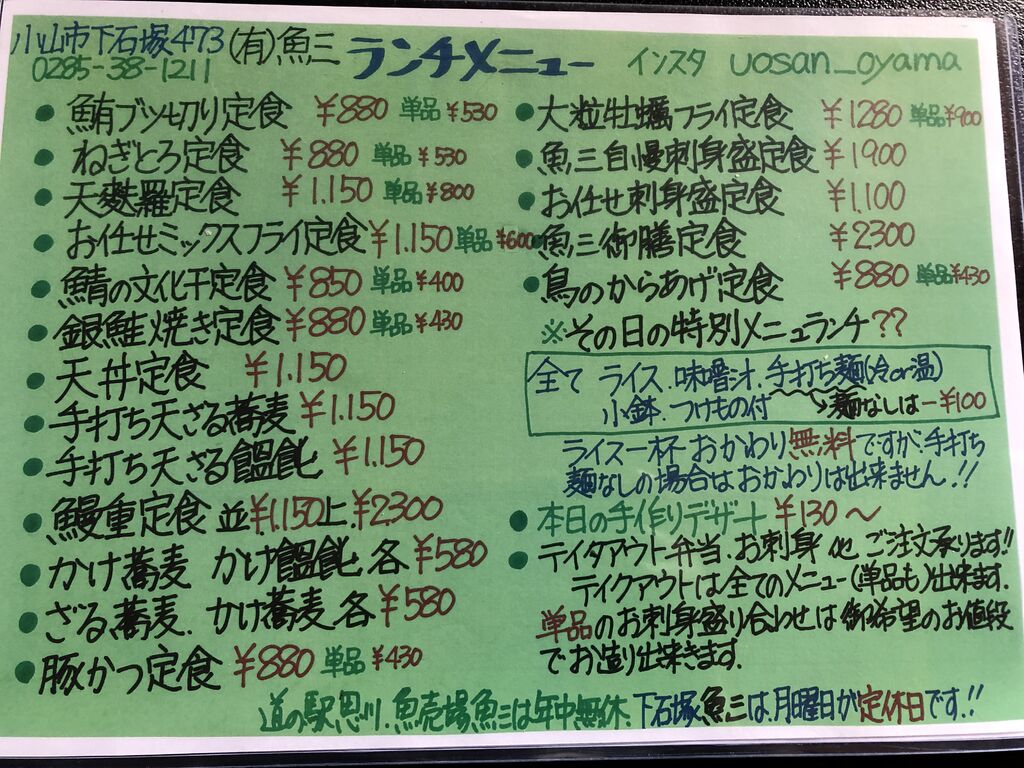 小山市下石塚473 (有)魚三 ランチメニュー インスタ uosan_oyama
0285-38-1211
● 鮪ブツ切り定食 ¥880 単品 ¥530
● ねぎとろ定食 ¥880 単品 ¥530
● 天麩羅定食 ¥1.150 単品 ¥800
● お任せミックスフライ定食 ¥1.150 単品 ¥600
● 鯖の文化干定食 ¥850 単品 ¥400
● 銀鮭焼き定食 ¥880 単品 ¥430
● 天丼定食 ¥1.150
● 手打ち天ざる蕎麦 ¥1.150
● 手打ち天ざる饂飩 ¥1.150
● 鰻重定食 並¥1.150 上¥2300
● かけ蕎麦 かけ饂飩 各 ¥580
● ざる蕎麦. かけ蕎麦 各 ¥580
● 豚かつ定食 ¥880 単品 ¥430
● 大粒牡蠣フライ定食 ¥1280 単品 ¥900
● 魚三自慢刺身盛定食 ¥1900
● お任せ刺身盛定食 ¥1.100
● 魚三御膳定食 ¥2300
● 鳥のからあげ定食 ¥880 単品 ¥430
※その日の特別メニュランチ??
全て ライス.味噌汁.手打ち麺(冷or温)
小鉢.つけもの付 麺なしは-¥100
ライス一杯おかわり無料ですが.手打ち
麺なしの場合はおかわりは出来ません.!!
● 本日の手作りデザート ¥130~
● テイクアウト弁当.お刺身 他 ご注文承ります!!
テイクアウトは全てのメニュー(単品も)出来ます.
単品のお刺身盛り合わせは御希望のお値段
でお造り出来きます.
道の駅思川.魚売場魚三は年中無休.下石塚魚三は月曜日が定休日です.!!